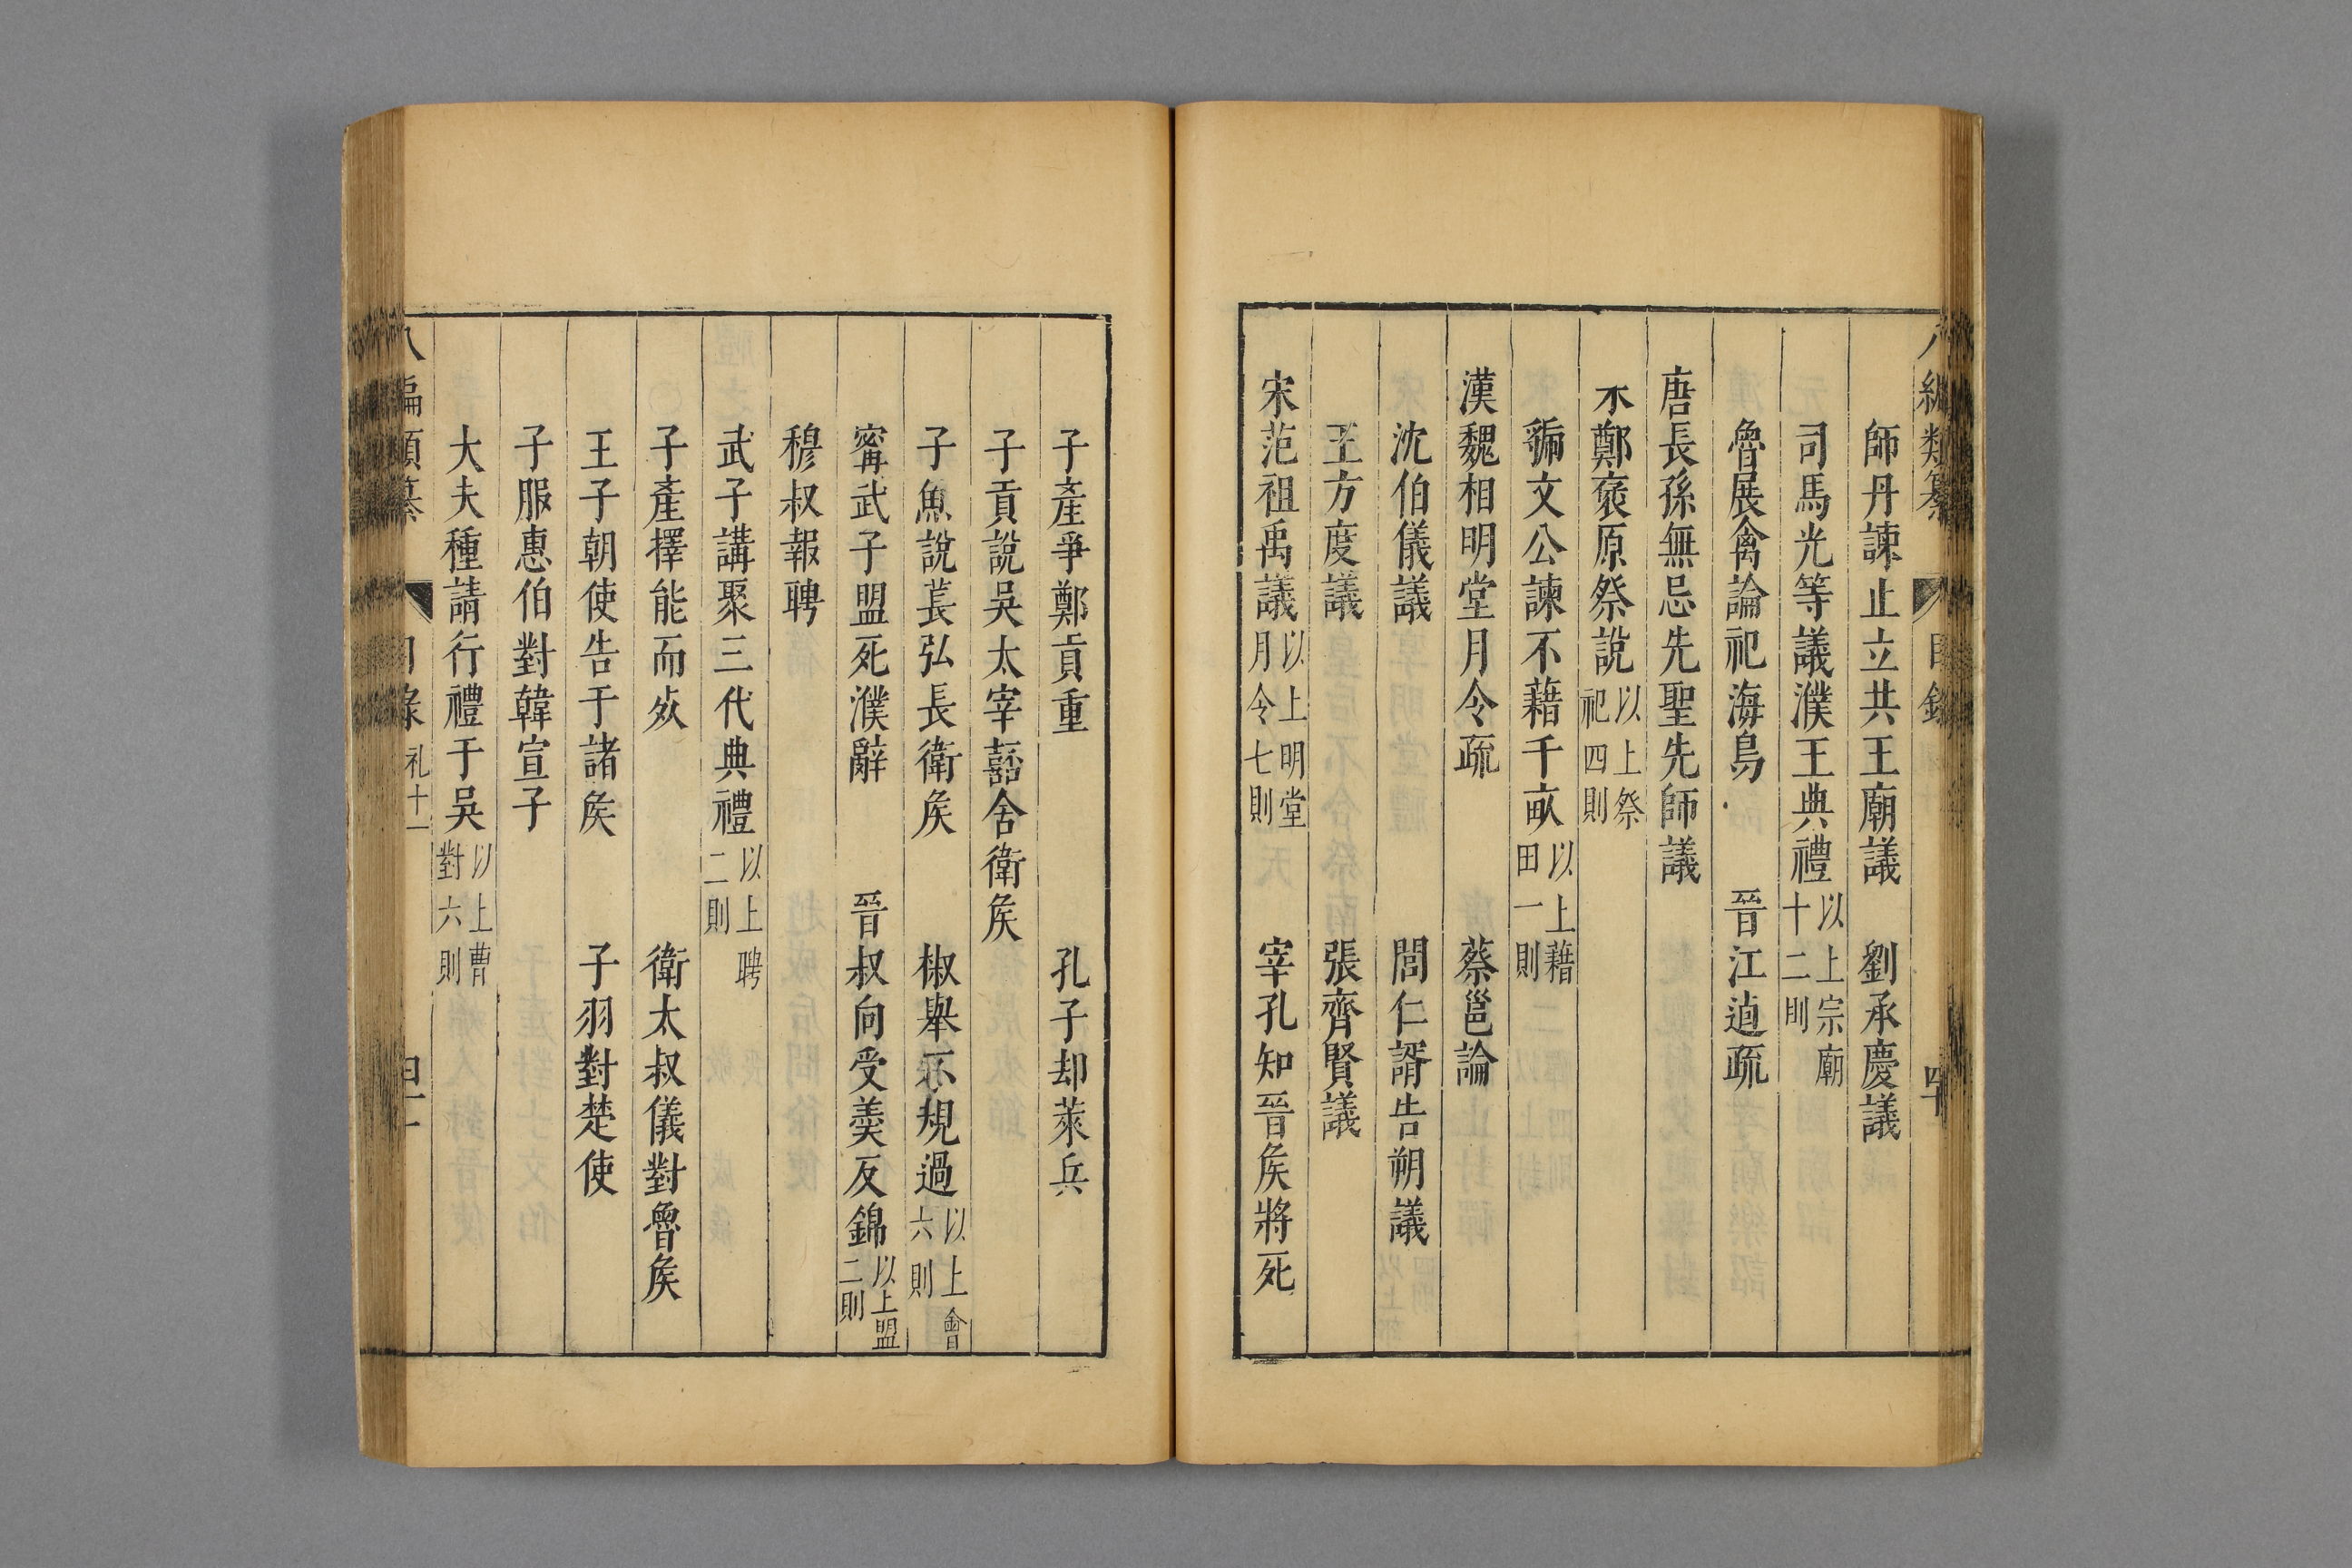 八編類纂 目錄 四十
師丹諫止立共王廟議 劉承慶議
司馬光等議濮王典禮 以上宗廟十二則
魯展禽論祀海鳥 晉江逌疏
唐長孫無忌先聖先師議
宋鄭褒原祭說 以上祭祀四則
虢文公諫不藉千畝 以上藉田一則
漢魏相明堂月令疏 蔡邕論
沈伯儀議 閻仁諝告朔議
王方度議 張齊賢議
宋范祖禹議 以上明堂月令七則 宰孔知晉矦將死
子產爭鄭貢重 孔子却萊兵
子貢說吳太宰嚭舍衛矦
子魚說萇弘長衛矦 椒舉不規過 以上會六則
甯武子盟宛濮辭 晉叔向受羮反錦 以上盟二則
穆叔報聘
武子講聚三代典禮 以上聘二則
子產擇能而使 衛太叔儀對魯矦
王子朝使告于諸矦 子羽對楚使
子服惠伯對韓宣子
大夫種請行禮于吳 以上曹對六則
八編類纂 目錄 礼十一 四十一